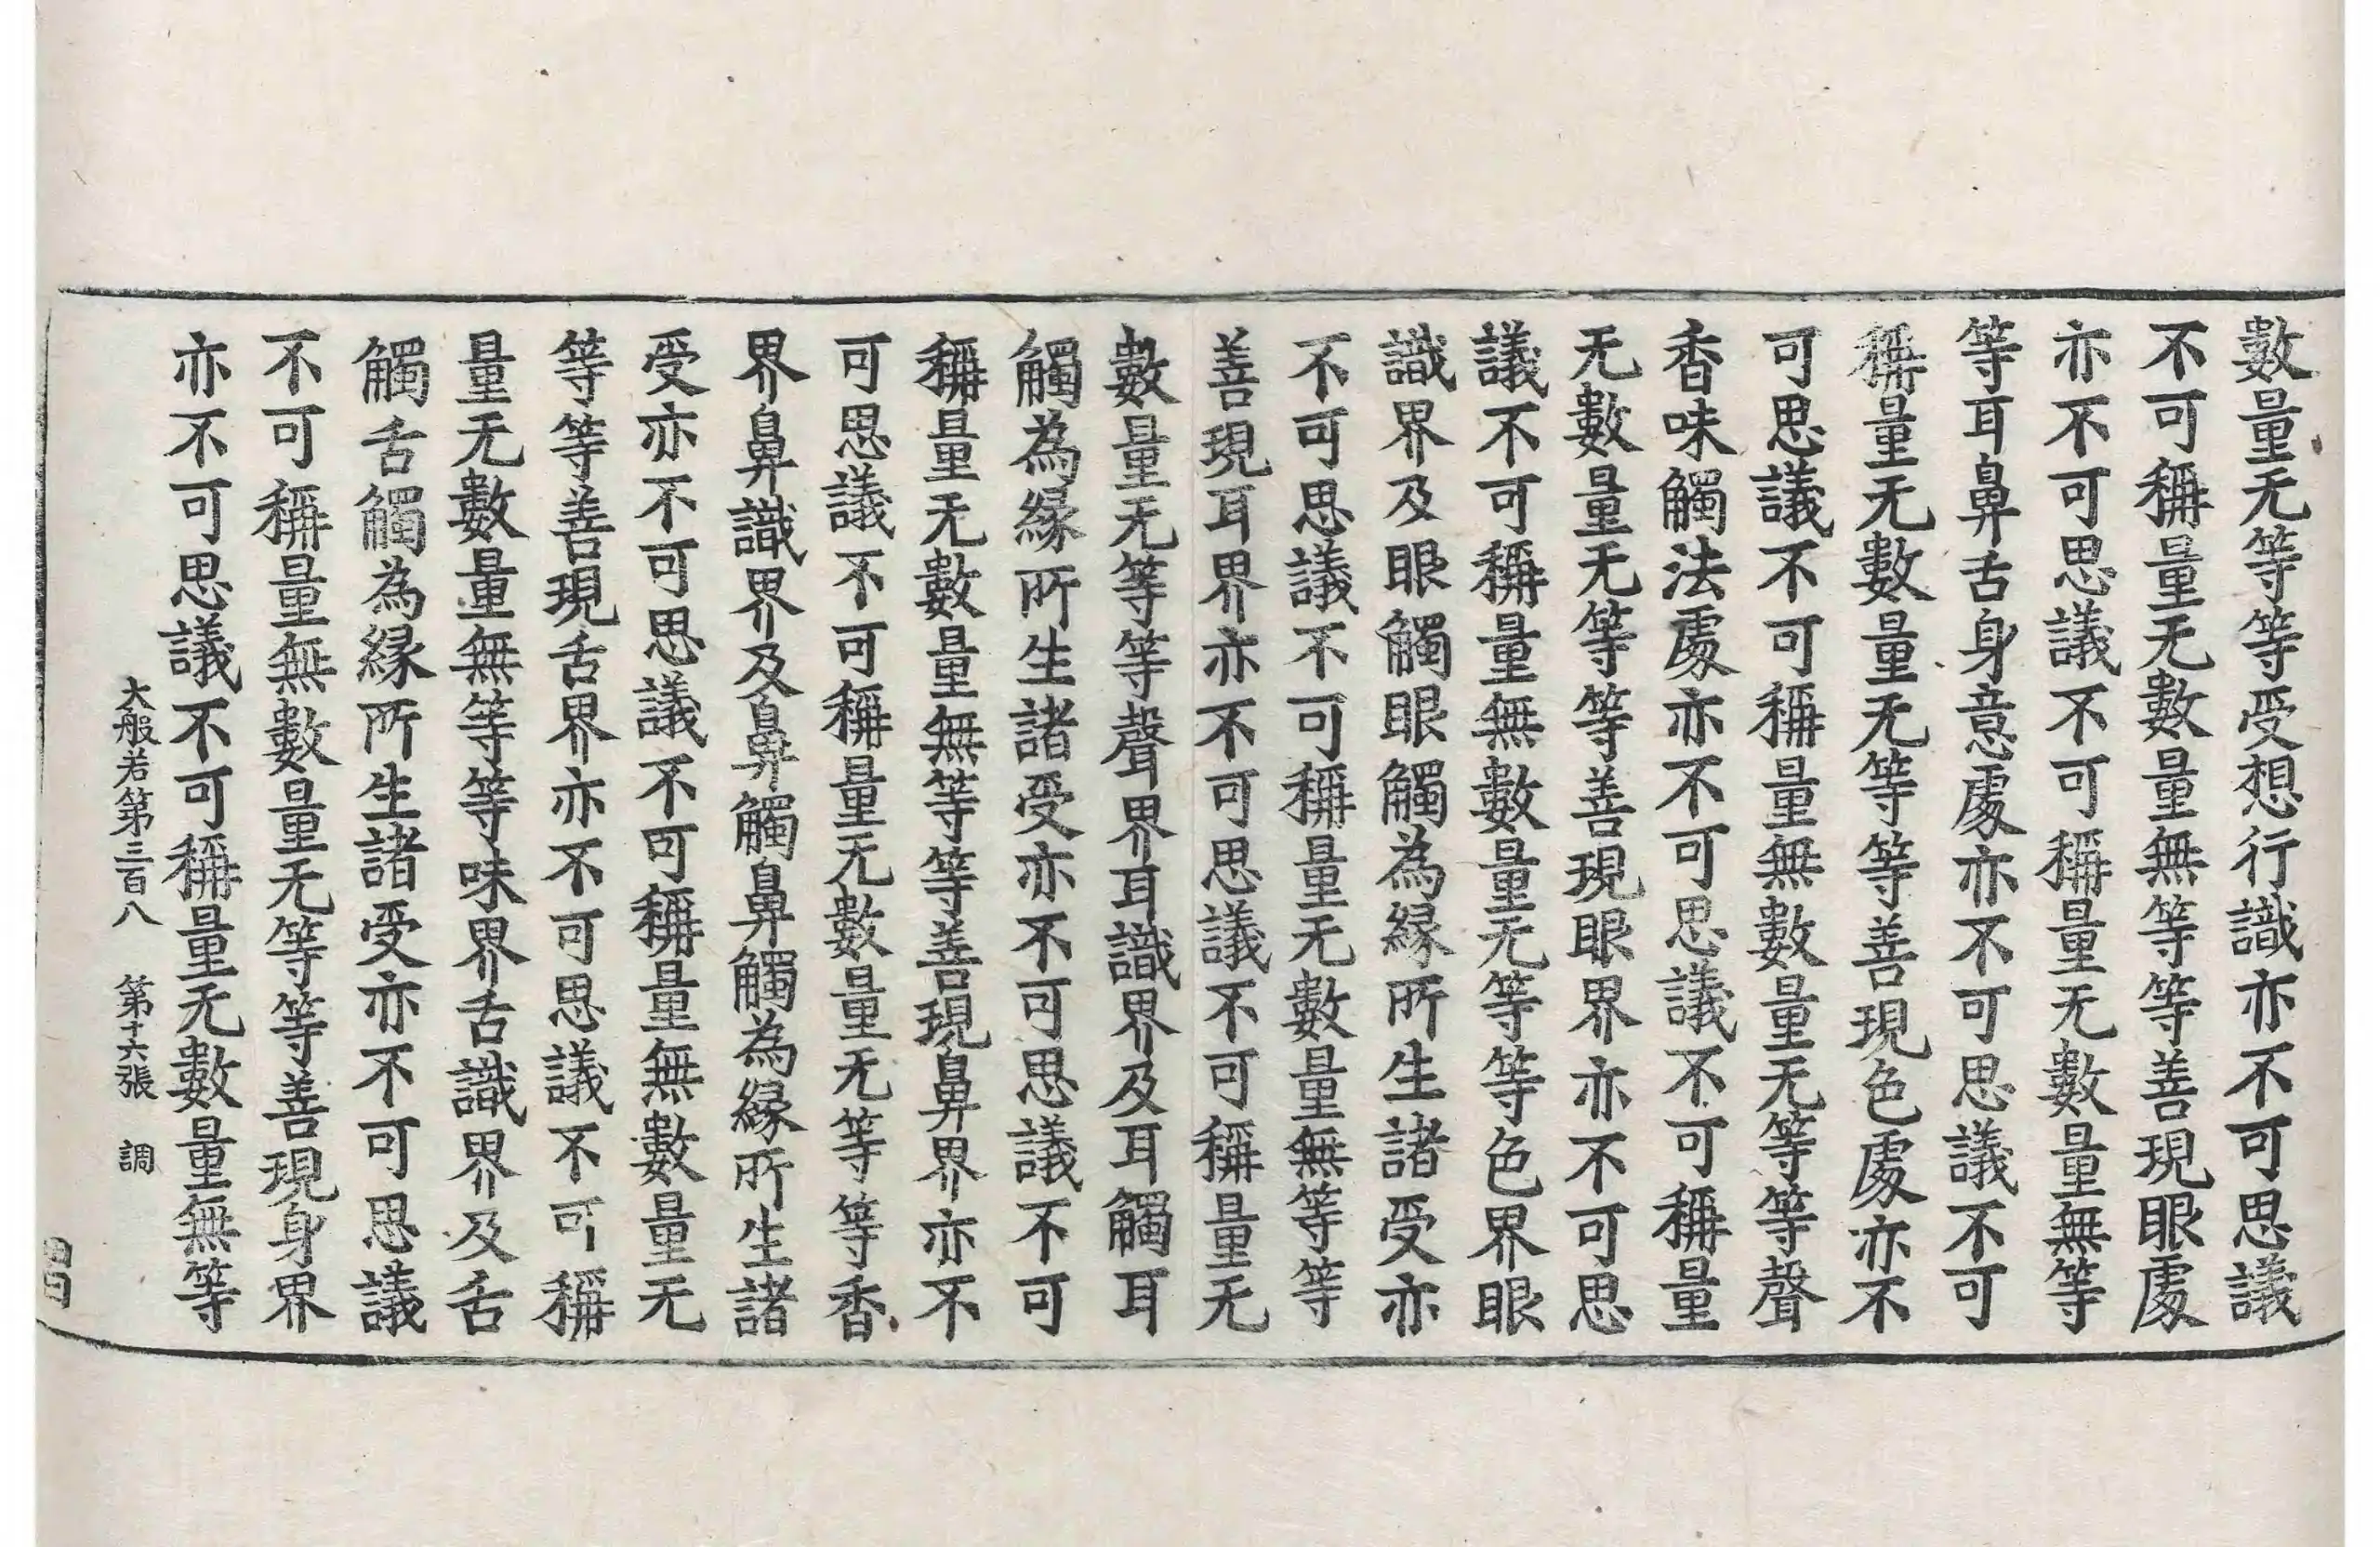 數量无等等受想行識亦不可思議
不可稱量无數量無等等善現眼處
亦不可思議不可稱量无數量無等
等耳鼻舌身意處亦不可思議不可
稱量无數量无等等善現色處亦不
可思議不可稱量無數量无等等聲
香味觸法處亦不可思議不可稱量
无數量无等等善現眼界亦不可思
議不可稱量無數量无等等色界眼
識界及眼觸眼觸為緣所生諸受亦
不可思議不可稱量无數量無等等
善現耳界亦不可思議不可稱量无
數量无等等聲界耳識界及耳觸耳
觸為緣所生諸受亦不可思議不可
稱量无數量無等等善現鼻界亦不
可思議不可稱量无數量无等等香
界鼻識界及鼻觸鼻觸為緣所生諸
受亦不可思議不可稱量無數量无
等等善現舌界亦不可思議不可稱
量无數量無等等味界舌識界及舌
觸舌觸為緣所生諸受亦不可思議
不可稱量無數量无等等善現身界
亦不可思議不可稱量无數量無等
大般若第三百八 第十六張 調